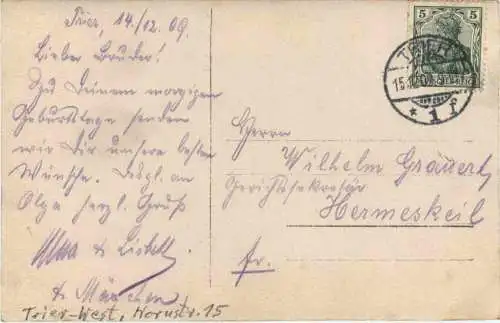 Trier, 14./12. 09.
Lieber Bruder!
Zu Deinem morgigen
Geburtstage senden
wir Dir unsere besten
Wünsche. Desgl. an
Olga herzl. Gruß
&
& Märchen
Trier-West, Hornstr. 15
5 5
TRIER
15.12.09
* 1 f
Herrn
Wilhelm Gräuert,
Gerichtssekretär
Hermeskeil
fr.